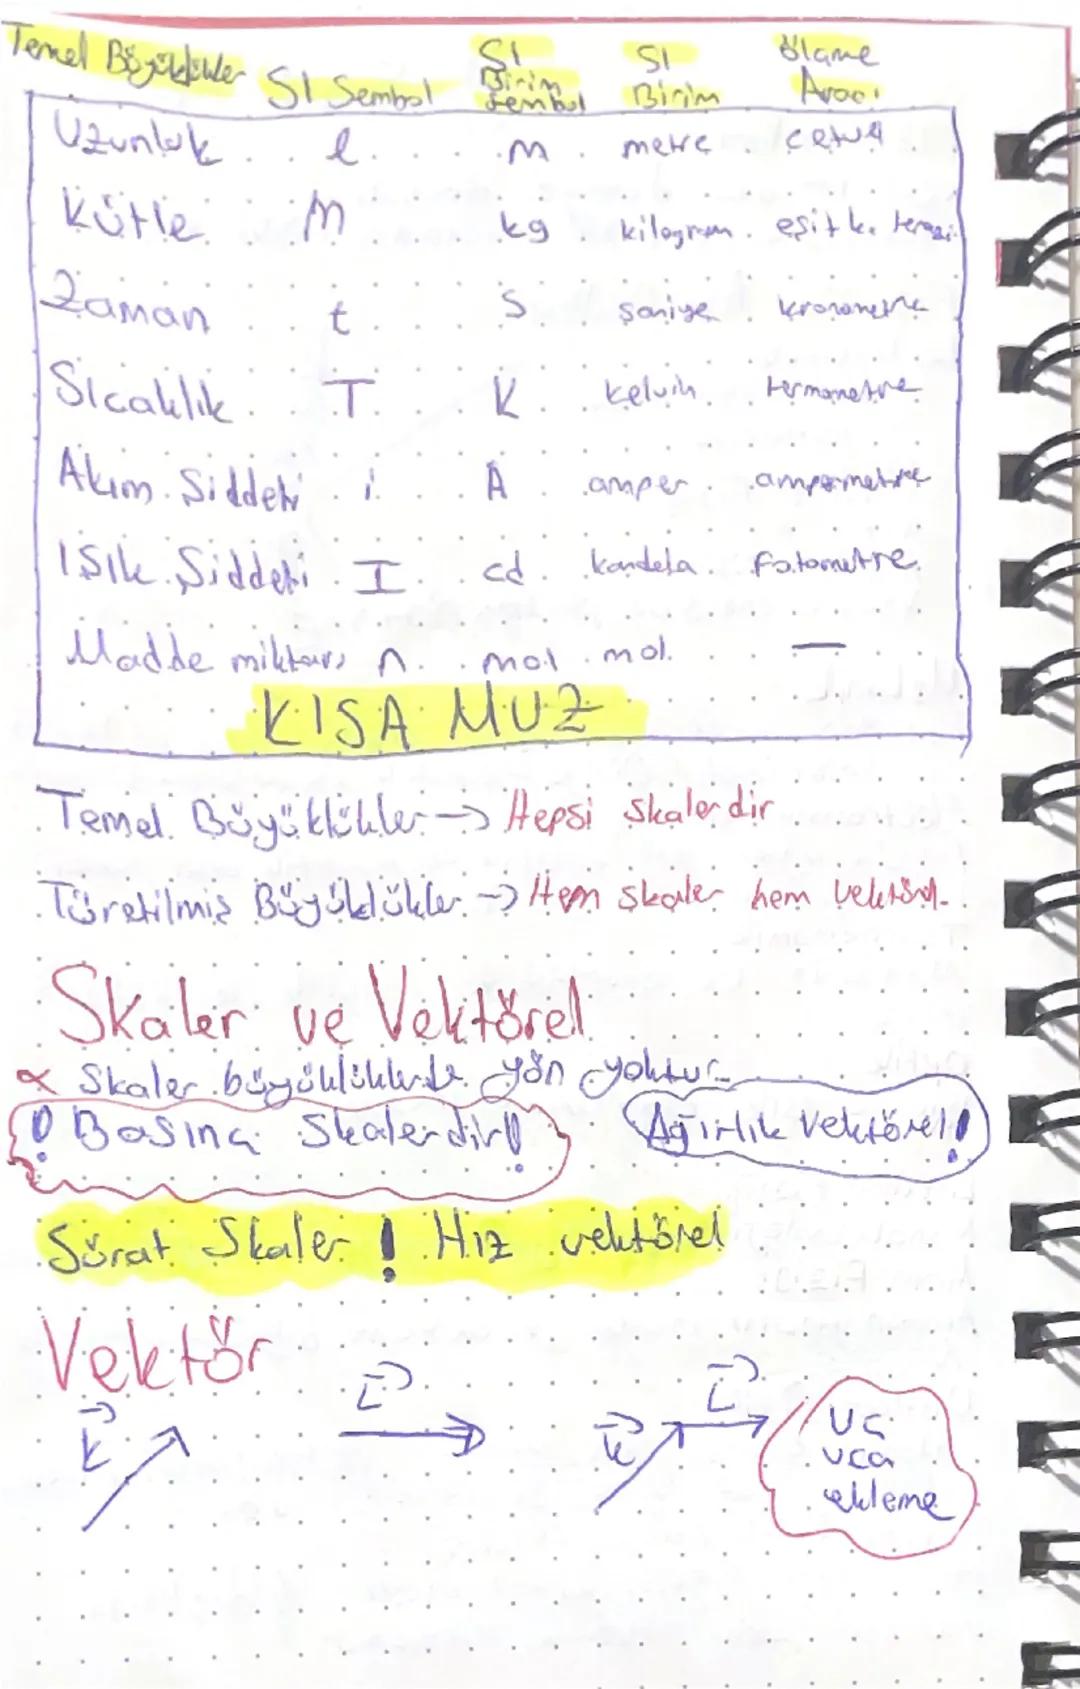 Temel Büyüklükler SI Sembol SI Birim Sembol SI Birim ölçme Aracı
Uzunluk l m metre cetvel
Kütle m kg kilogram eşit k. terazi
Zaman t s saniye kronometre
Sıcaklık T K kelvin termometre
Akım Şiddeti i A amper ampermetre
Işık Şiddeti I cd kandela fotometre
Madde miktarı n mol mol —
KISA MUZ
Temel Büyüklükler → Hepsi skalerdir
Türetilmiş Büyüklükler → Hem skaler hem vektörel
Skaler ve Vektörel
Skaler büyüklüklerde yön yoktur
! Basınç Skalerdir! Ağırlık Vektörel!
Sürat Skaler ! Hız vektörel
Vektör
K L K L
Uc
uca
ekleme